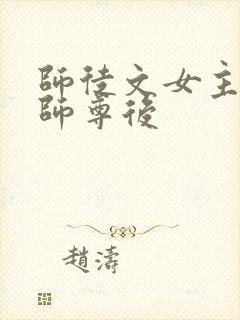 師徒文女主
師尊後
趙濤